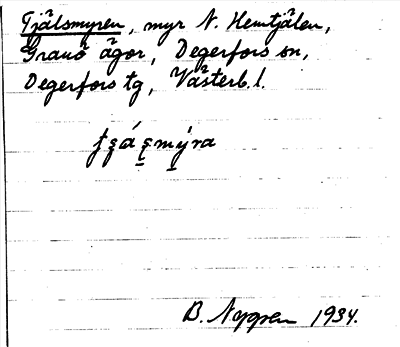 Tjälsmyren, myr N. Hemtjälen,
Granö ägor, Degerfors sn,
Degerfors tg, Västerb. l.
B. Nygren 1934.